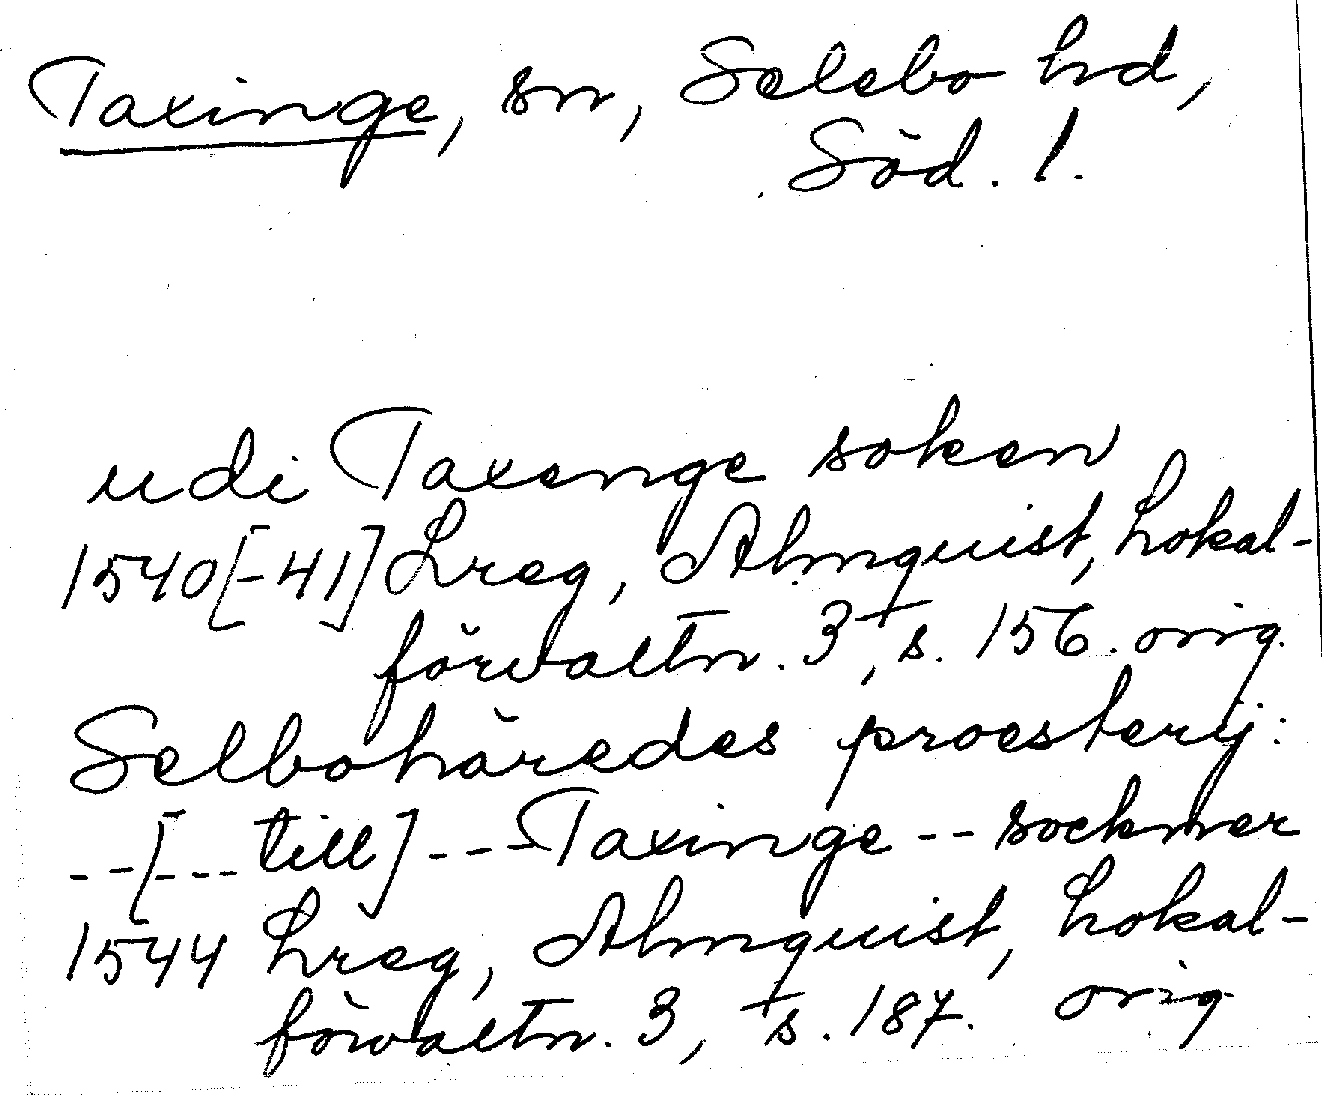 Taxinge, sn, Selebo hd,
Söd. l.
udi Taxenge soken
1540[-41] Lreg, Almquist, Lokal-
förvaltn. 3, s. 156. orig.
Selbohäredes proesterij:
--[--- till] --- Taxinge -- sockner
1544 Lreg, Almquist, Lokal-
förvaltn. 3, s. 187. orig